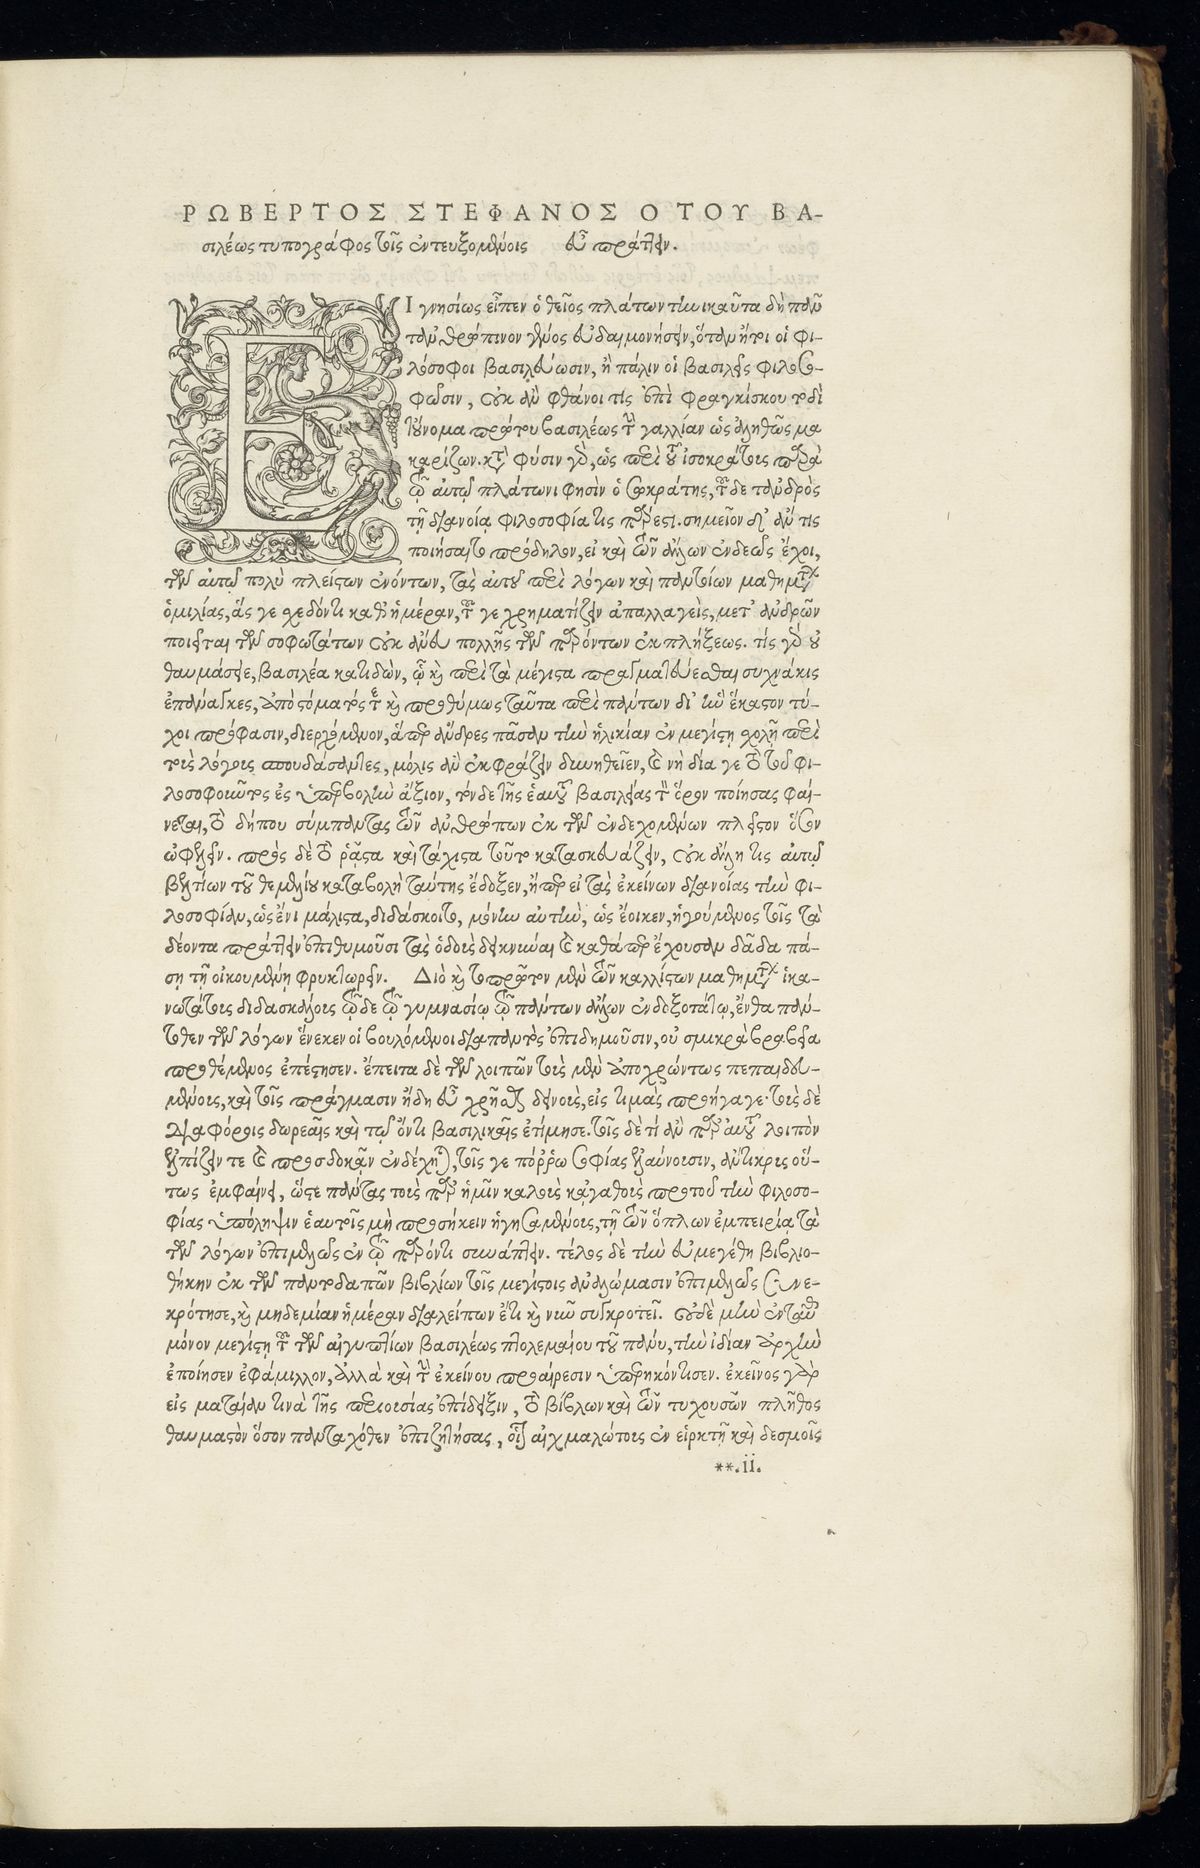 ΡΩΒΕΡΤΟΣ ΣΤΕΦΑΝΟΣ Ο ΤΟΥ ΒΑ-
σιλέως τυπογράφος τοῖς ἐντευξομένοις εὖ πράττειν.
ΕΙ γνησίως εἶπεν ὁ θεῖος πλάτων τηνικαῦτα δὴ που
τἀνθρώπινον γένος εὐδαιμονήσειν, ὅταν ἤτοι οἱ φι-
λόσοφοι βασιλεύωσιν, ἢ πάλιν οἱ βασιλεῖς φιλοσο-
φῶσιν, οὐκ ἂν φθάνοι τις ἐπὶ φραγκίσκου τοδὶ
τοὔνομα πρώτου βασιλέως τῶν γαλλίαν ὡς ἀληθῶς μα
καρίζων. κατὰ φύσιν γὰρ, ὡς περὶ τοῦ ἰσοκράτους παρὰ
τῷ αὐτῷ πλάτωνι φησὶν ὁ σωκράτης, τῇ τοῦδε τἀνδρὸς
τῇ διανοίᾳ φιλοσοφία τις πάρεστι. σημεῖον δ' ἄν τις
ποιήσαιτο πρόδηλον, εἰ καὶ τῶν ἄλλων ἐνδεῶς ἔχοι,
τῶν αὐτῷ πολὺ πλείστων ἐνόντων, τὰς αὐτοῦ περὶ λόγων καὶ παντοίων μαθημάτων
ὁμιλίας, ἅς γε σχεδόν τι καθ' ἡμέραν, τοῦ γε χρηματίζειν ἀπαλλαγεὶς, μετ' ἀνδρῶν
ποιεῖται τῶν σοφωτάτων οὐκ ἄνευ πολλῆς τῶν παρόντων ἐκπλήξεως. τίς γὰρ οὐ
θαυμάσειε, βασιλέα κατιδὼν, ᾧ καὶ περὶ τὰ μέγιστα πραγματεύεσθαι συχνάκις
ἐπάναγκες, ἀπὸ στόματός τε καὶ προθύμως ταῦτα περὶ πάντων δι' ἣν ἕκαστον τύ-
χοι πρόφασιν, διερχόμενον, ἅπερ ἄνδρες πᾶσαν τὴν ἡλικίαν ἐν μεγίστῃ σχολῇ περὶ
τοὺς λόγους σπουδάσαντες, μόλις ἂν ἐκφράζειν δυνηθεῖεν, καὶ νὴ δία γε τὸ τοῦ φι-
λοσοφοῦντος ἐς ὑπερβολὴν ἄξιον, τόνδε τῆς ἑαυτοῦ βασιλείας τὸν ὅρον ποίησας φαί-
νεται, τὸ δήπου σύμπαντας τῶν ἀνθρώπων ἐκ τῶν ἐνδεχομένων πλεῖστον ὅσον
ὠφελεῖν. πρὸς δὲ τὸ ῥᾷστα καὶ τάχιστα τοῦτο κατασκευάζειν, οὐκ ἄλλη τις αὐτῷ
βελτίων τοῦ θεμελίου καταβολὴ ταύτης ἔδοξεν, ἤπερ εἰ τὰς ἐκείνων διανοίας τὴν φι-
λοσοφίαν, ὡς ἔνι μάλιστα, διδάσκοιτο, μόνην αὐτὴν, ὡς ἔοικεν, ἡγούμενος τοῖς τὰ
δέοντα πράττειν ἐπιθυμοῦσι τὰς ὁδοὺς δεικνύναι καὶ καθάπερ ἔχουσαν δᾷδα πά-
σῃ τῇ οἰκουμένῃ φρυκτωρεῖν. Διὸ καὶ τοπρῶτον μὲν τῶν καλλίστων μαθημάτων ἱκα-
νωτάτοις διδασκάλοις τῷδε τῷ γυμνασίῳ τῷ πάντων ἄλλων ἐνδοξοτάτῳ, ἔνθα πάν-
τοθεν τῶν λόγων ἕνεκεν οἱ βουλόμενοι διαπαντὸς ἐπιδημοῦσιν, οὐ σμικρὰ βραβεῖα
προθέμενος ἐπέστησεν. ἔπειτα δὲ τῶν λοιπῶν τοὺς μὲν ἀποχρώντως πεπαιδευ-
μένους, καὶ τοῖς πράγμασιν ἤδη εὖ χρῆσθαι δεινοὺς, εἰς τιμὰς προήγαγε· τοὺς δὲ
διαφόροις δωρεαῖς καὶ τῷ ὄντι βασιλικαῖς ἐτίμησε. τοῖς δὲ τί ἂν παρ' αὐτοῦ λοιπὸν
ἐλπίζειν τε καὶ προσδοκᾶν ἐνδέχηται, τοῖς γε πόῤῥω σοφίας ἐλαύνουσιν, ἄντικρις οὕ-
τως ἐμφαίνει, ὥστε πάντας τοὺς παρ' ἡμῖν καλοὺς κἀγαθοὺς προτοῦ τὴν φιλοσο-
φίας ὑπόληψιν ἑαυτοῖς μὴ προσήκειν ἡγησαμένους, τῇ τῶν ὅπλων ἐμπειρίᾳ τὰ
τῶν λόγων ἐπιμελῶς ἐν τῷ παρόντι συνάπτειν. τέλος δὲ τὴν εὐμεγέθη βιβλιο-
θήκην ἐκ τῶν παντοδαπῶν βιβλίων τοῖς μεγίστοις ἀναλώμασιν ἐπιμελῶς συνε-
κρότησε, καὶ μηδεμίαν ἡμέραν διαλείπων ἔτι καὶ νῦν συγκροτεῖ. οὐδὲ μὴν ἐνταῦθα
μόνον μεγίστῃ τῇ τῶν αἰγυπτίων βασιλέως πτολεμαίου τοῦ πάνυ, τὴν ἰδίαν ἀρχὴν
ἐποίησεν ἐφάμιλλον, ἀλλὰ καὶ τὴν ἐκείνου προαίρεσιν ὑπερηκόντισεν. ἐκεῖνος γὰρ
εἰς ματαίαν τινὰ τῆς περιουσίας ἐπίδειξιν, τὸ βίβλων καὶ τῶν τυχουσῶν πλῆθος
θαυμαστὸν ὅσον πανταχόθεν ἐπιζητήσας, οἷον αἰχμαλώτους ἐν εἱρκτῇ καὶ δεσμοῖς
**.ii.